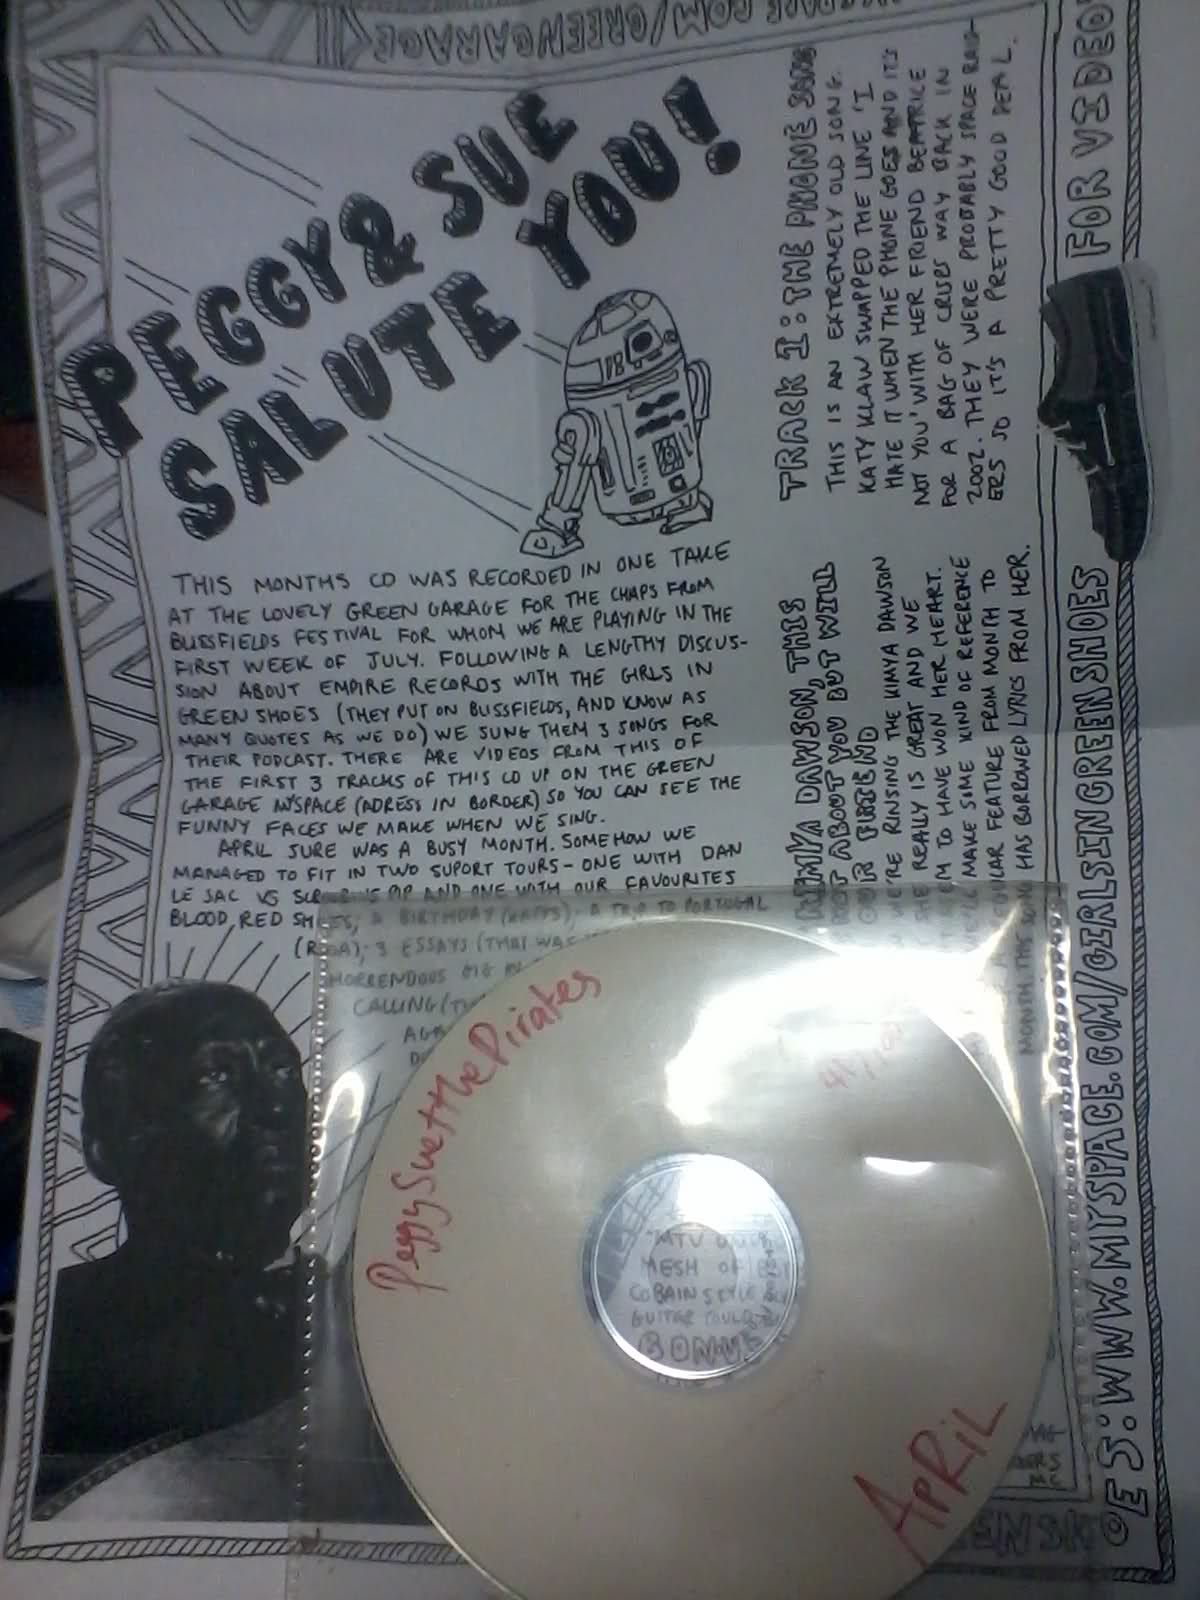 PEGGY & SUE
SALUTE YOU!
THIS MONTHS CD WAS RECORDED IN ONE TAKE
AT THE LOVELY GREEN GARAGE FOR THE CHAPS FROM
BLISSFIELDS FESTIVAL FOR WHOM WE ARE PLAYING IN THE
FIRST WEEK OF JULY. FOLLOWING A LENGTHY DISCUS-
SION ABOUT EMPIRE RECORDS WITH THE GIRLS IN
GREEN SHOES (THEY PUT ON BLISSFIELDS, AND KNOW AS
MANY QUOTES AS WE DO) WE SUNG THEM 3 SONGS FOR
THEIR PODCAST. THERE ARE VIDEOS FROM THIS OF
THE FIRST 3 TRACKS OF THIS CD UP ON THE GREEN
GARAGE MYSPACE (ADRESS IN BORDER) SO YOU CAN SEE THE
FUNNY FACES WE MAKE WHEN WE SING.
APRIL SURE WAS A BUSY MONTH. SOMEHOW WE
MANAGED TO FIT IN TWO SUPORT TOURS - ONE WITH DAN
LE SAC VS SCROOBIUS PIP AND ONE WITH OUR FAVOURITES
BLOOD RED SHOES; A BIRTHDAY (KATYS); A TRIP TO PORTUGAL
(ROSA); 3 ESSAYS (THAT WAS
HORRENDOUS GIG IN
CALLING
AGA
TRACK 1: THE PHONE SONG
THIS IS AN EXTREMELY OLD SONG.
KATY KLAW SWAPPED THE LINE 'I
HATE IT WHEN THE PHONE GOES AND IT'S
NOT YOU' WITH HER FRIEND BEATRICE
FOR A BAG OF CRISPS WAY BACK IN
2002. THEY WERE PROBABLY SPACE RAID-
ERS SO IT'S A PRETTY GOOD DEAL.
KIMYA DAWSON, THIS
NOT ABOUT YOU BUT WILL
OUR FRIEND
WE'RE RINSING THE KIMYA DAWSON
SHE REALLY IS GREAT AND WE
EM TO HAVE WON HER HEART.
WE'LL MAKE SOME KIND OF REFERENCE
A REGULAR FEATURE FROM MONTH TO
MONTH. THIS SONG HAS BORROWED LYRICS FROM HER.
MYSPACE.COM/GREENGARAGE
FOR VIDEO
ES: WWW.MYSPACE.COM/GIRLSINGREENSHOES
Peggy Sue & the Pirates
APRIL
MTV
MESH OF
COBAIN STYLE
GUITAR
BONUS